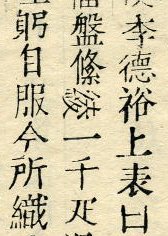 李德裕上表曰
盤絛綾一千疋
躬自服今所織